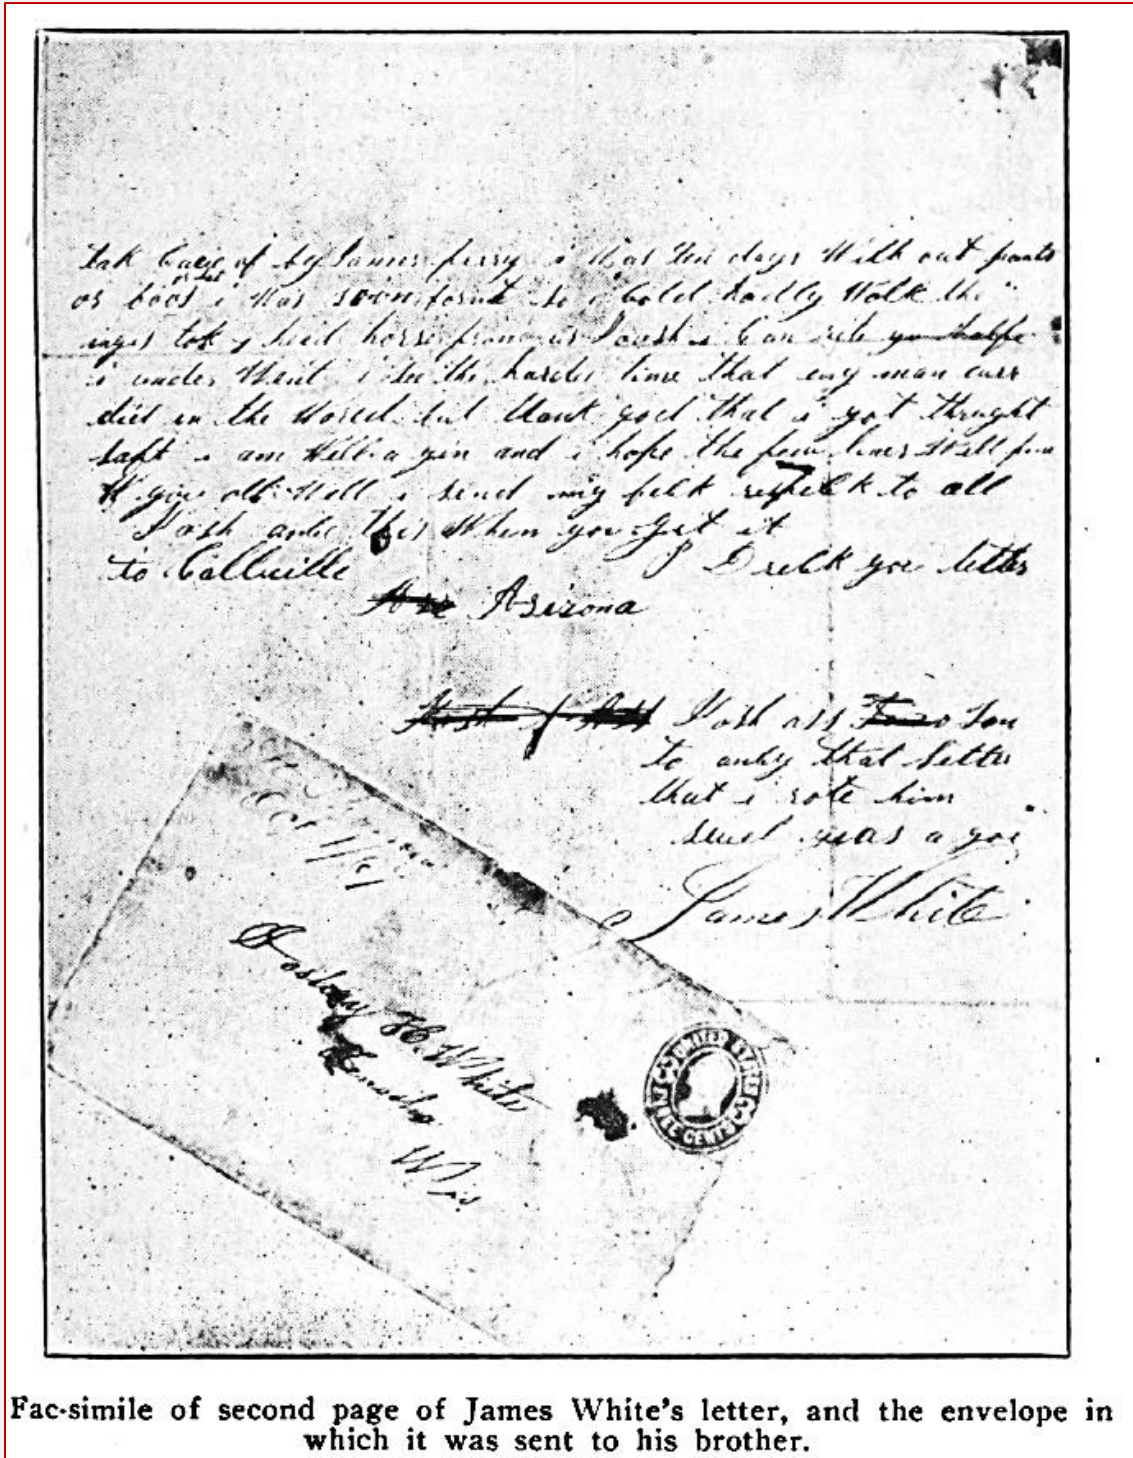 tak Care of by James ferry i Was ten days With out pants
or hat
or boos i Was soon bornt so i Cold hadly Wolk the
ingis tok 7 head horse from us Joosh i Can rite you thalfe
i under Went i see the hardes time that eny man ever
did in the World but thank god that i got thrught
saft i am Well a gin and i hope the few lines Will fine
you all Well i send my beck respeck to all
Josh ance this When you git it
to Callville Dreck yor letter
Arizona
Josh ass Tom
to ancy that letter
that i rote him
sevel yeas a goe
James White
H. White
Kenosha
Wis
UNITED STATES
THREE CENTS
Fac-simile of second page of James White's letter, and the envelope in
which it was sent to his brother.